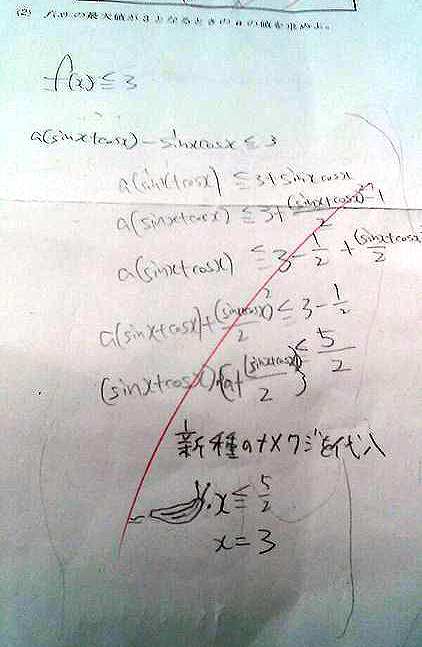 (2) f(x)の最大値が3となるときのaの値を求めよ。
f(x)≦3
a(sinx+cosx)-sinxcosx≦3
a(sinx+cosx)≦3+sinxcosx
a(sinx+cosx)≦3+(sinx+cosx)²-1/2
a(sinx+cosx)≦3-1/2+(sinx+cosx)/2
a(sinx+cosx)+(sinx+cosx)²/2≦3-1/2
(sinx+cosx){a+(sinx+cosx)/2}≦5/2
新種のナメクジを代入
・x≦5/2
x=3